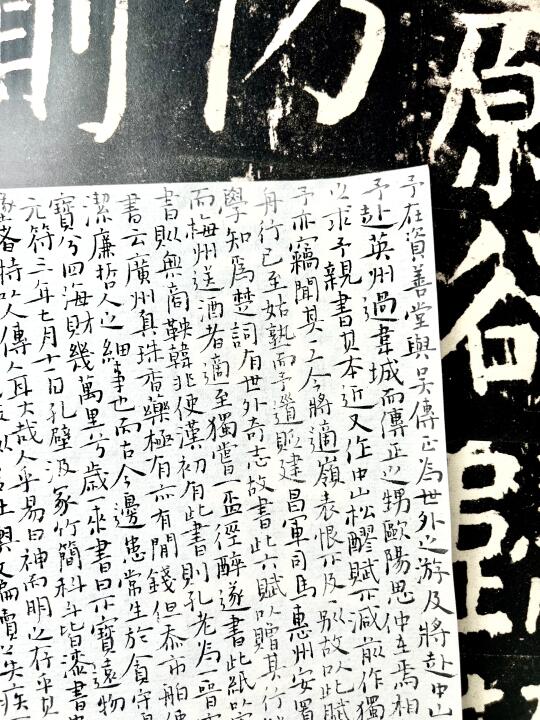 原谷
予在資善堂與吳傳正為世外之游及將赴中山
予赴英州過韋城而傳正之甥歐陽思仲在焉相
以求予親書其本近又作中山松醪賦不減前作獨
予亦竊聞其工今將適嶺表恨不及別故以此賦
舟行已至姑孰而予道貶建昌軍司馬惠州安置
學知為楚詞有世外奇志故書此六賦以贈其行
而梅州送酒者適至獨嘗一盃徑醉遂書此紙以
書則無商鞅韓非使漢初有此書則孔老為一晉
書云廣州真珠香藥極有亦有閒錢但忝市舶使
潔廉哲人之細事也而古今邊患常生於貪守
寶兮四海財幾萬里兮歲一來書曰不寶遠物
元符三年七月十一日孔壁汲冢竹簡科斗皆漆書
者特以人傳人耳大哉人乎易曰神而明之存乎其